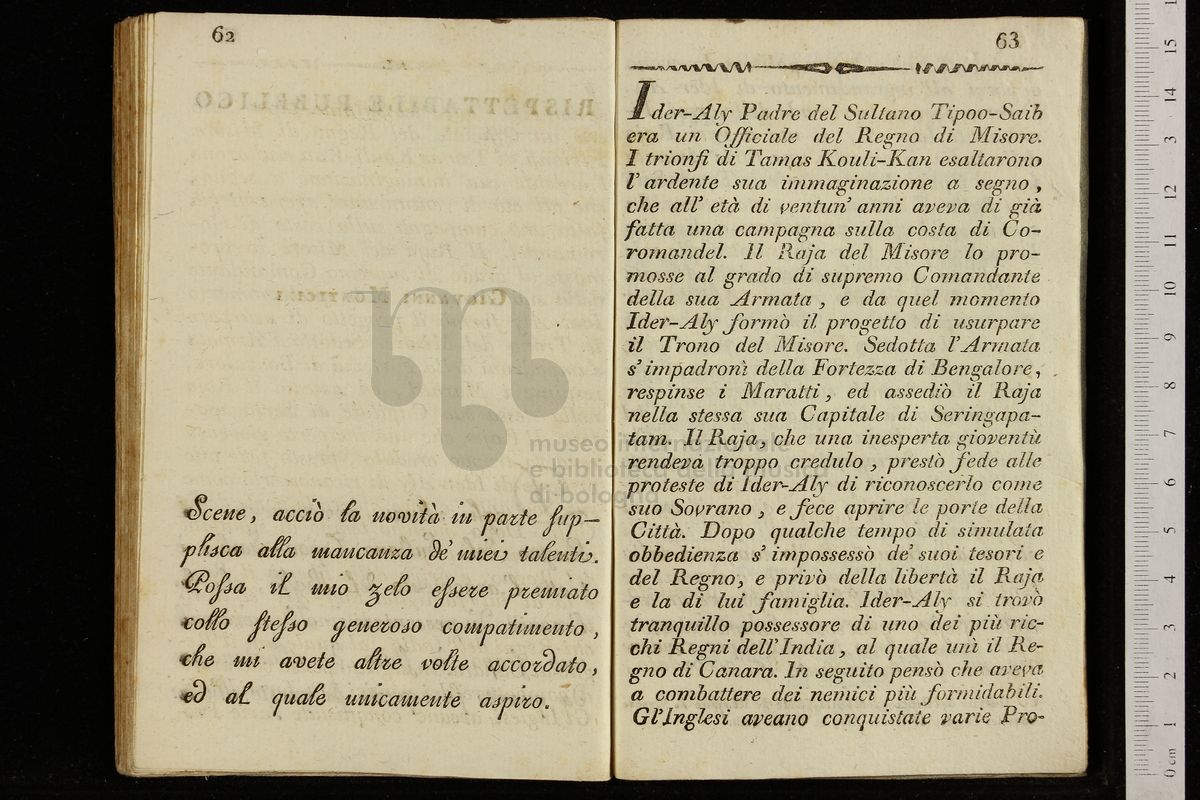 62
Scene, acciò la novità in parte sup-
plisca alla mancanza de' miei talenti.
Possa il mio zelo essere premiato
collo stesso generoso compatimento,
che mi avete altre volte accordato,
ed al quale unicamente aspiro.
63
Ider-Aly Padre del Sultano Tipoo-Saib
era un Officiale del Regno di Misore.
I trionfi di Tamas Kouli-Kan esaltarono
l'ardente sua immaginazione a segno,
che all' età di ventun' anni aveva di già
fatta una campagna sulla costa di Co-
romandel. Il Raja del Misore lo pro-
mosse al grado di supremo Comandante
della sua Armata, e da quel momento
Ider-Aly formò il progetto di usurpare
il Trono del Misore. Sedotta l'Armata
s'impadronì della Fortezza di Bengalore,
respinse i Maratti, ed assediò il Raja
nella stessa sua Capitale di Seringapa-
tam. Il Raja, che una inesperta gioventù
rendeva troppo credulo, prestò fede alle
proteste di Ider-Aly di riconoscerlo come
suo Sovrano, e fece aprire le porte della
Città. Dopo qualche tempo di simulata
obbedienza s'impossessò de' suoi tesori e
del Regno, e privò della libertà il Raja
e la di lui famiglia. Ider-Aly si trovò
tranquillo possessore di uno dei più ric-
chi Regni dell'India, al quale unì il Re-
gno di Canara. In seguito pensò che aveva
a combattere dei nemici più formidabili.
Gl'Inglesi aveano conquistate varie Pro-
museo internazionale
e biblioteca della musica
di bologna
0 cm 1 2 3 4 5 6 7 8 9 10 11 12 13 14 15